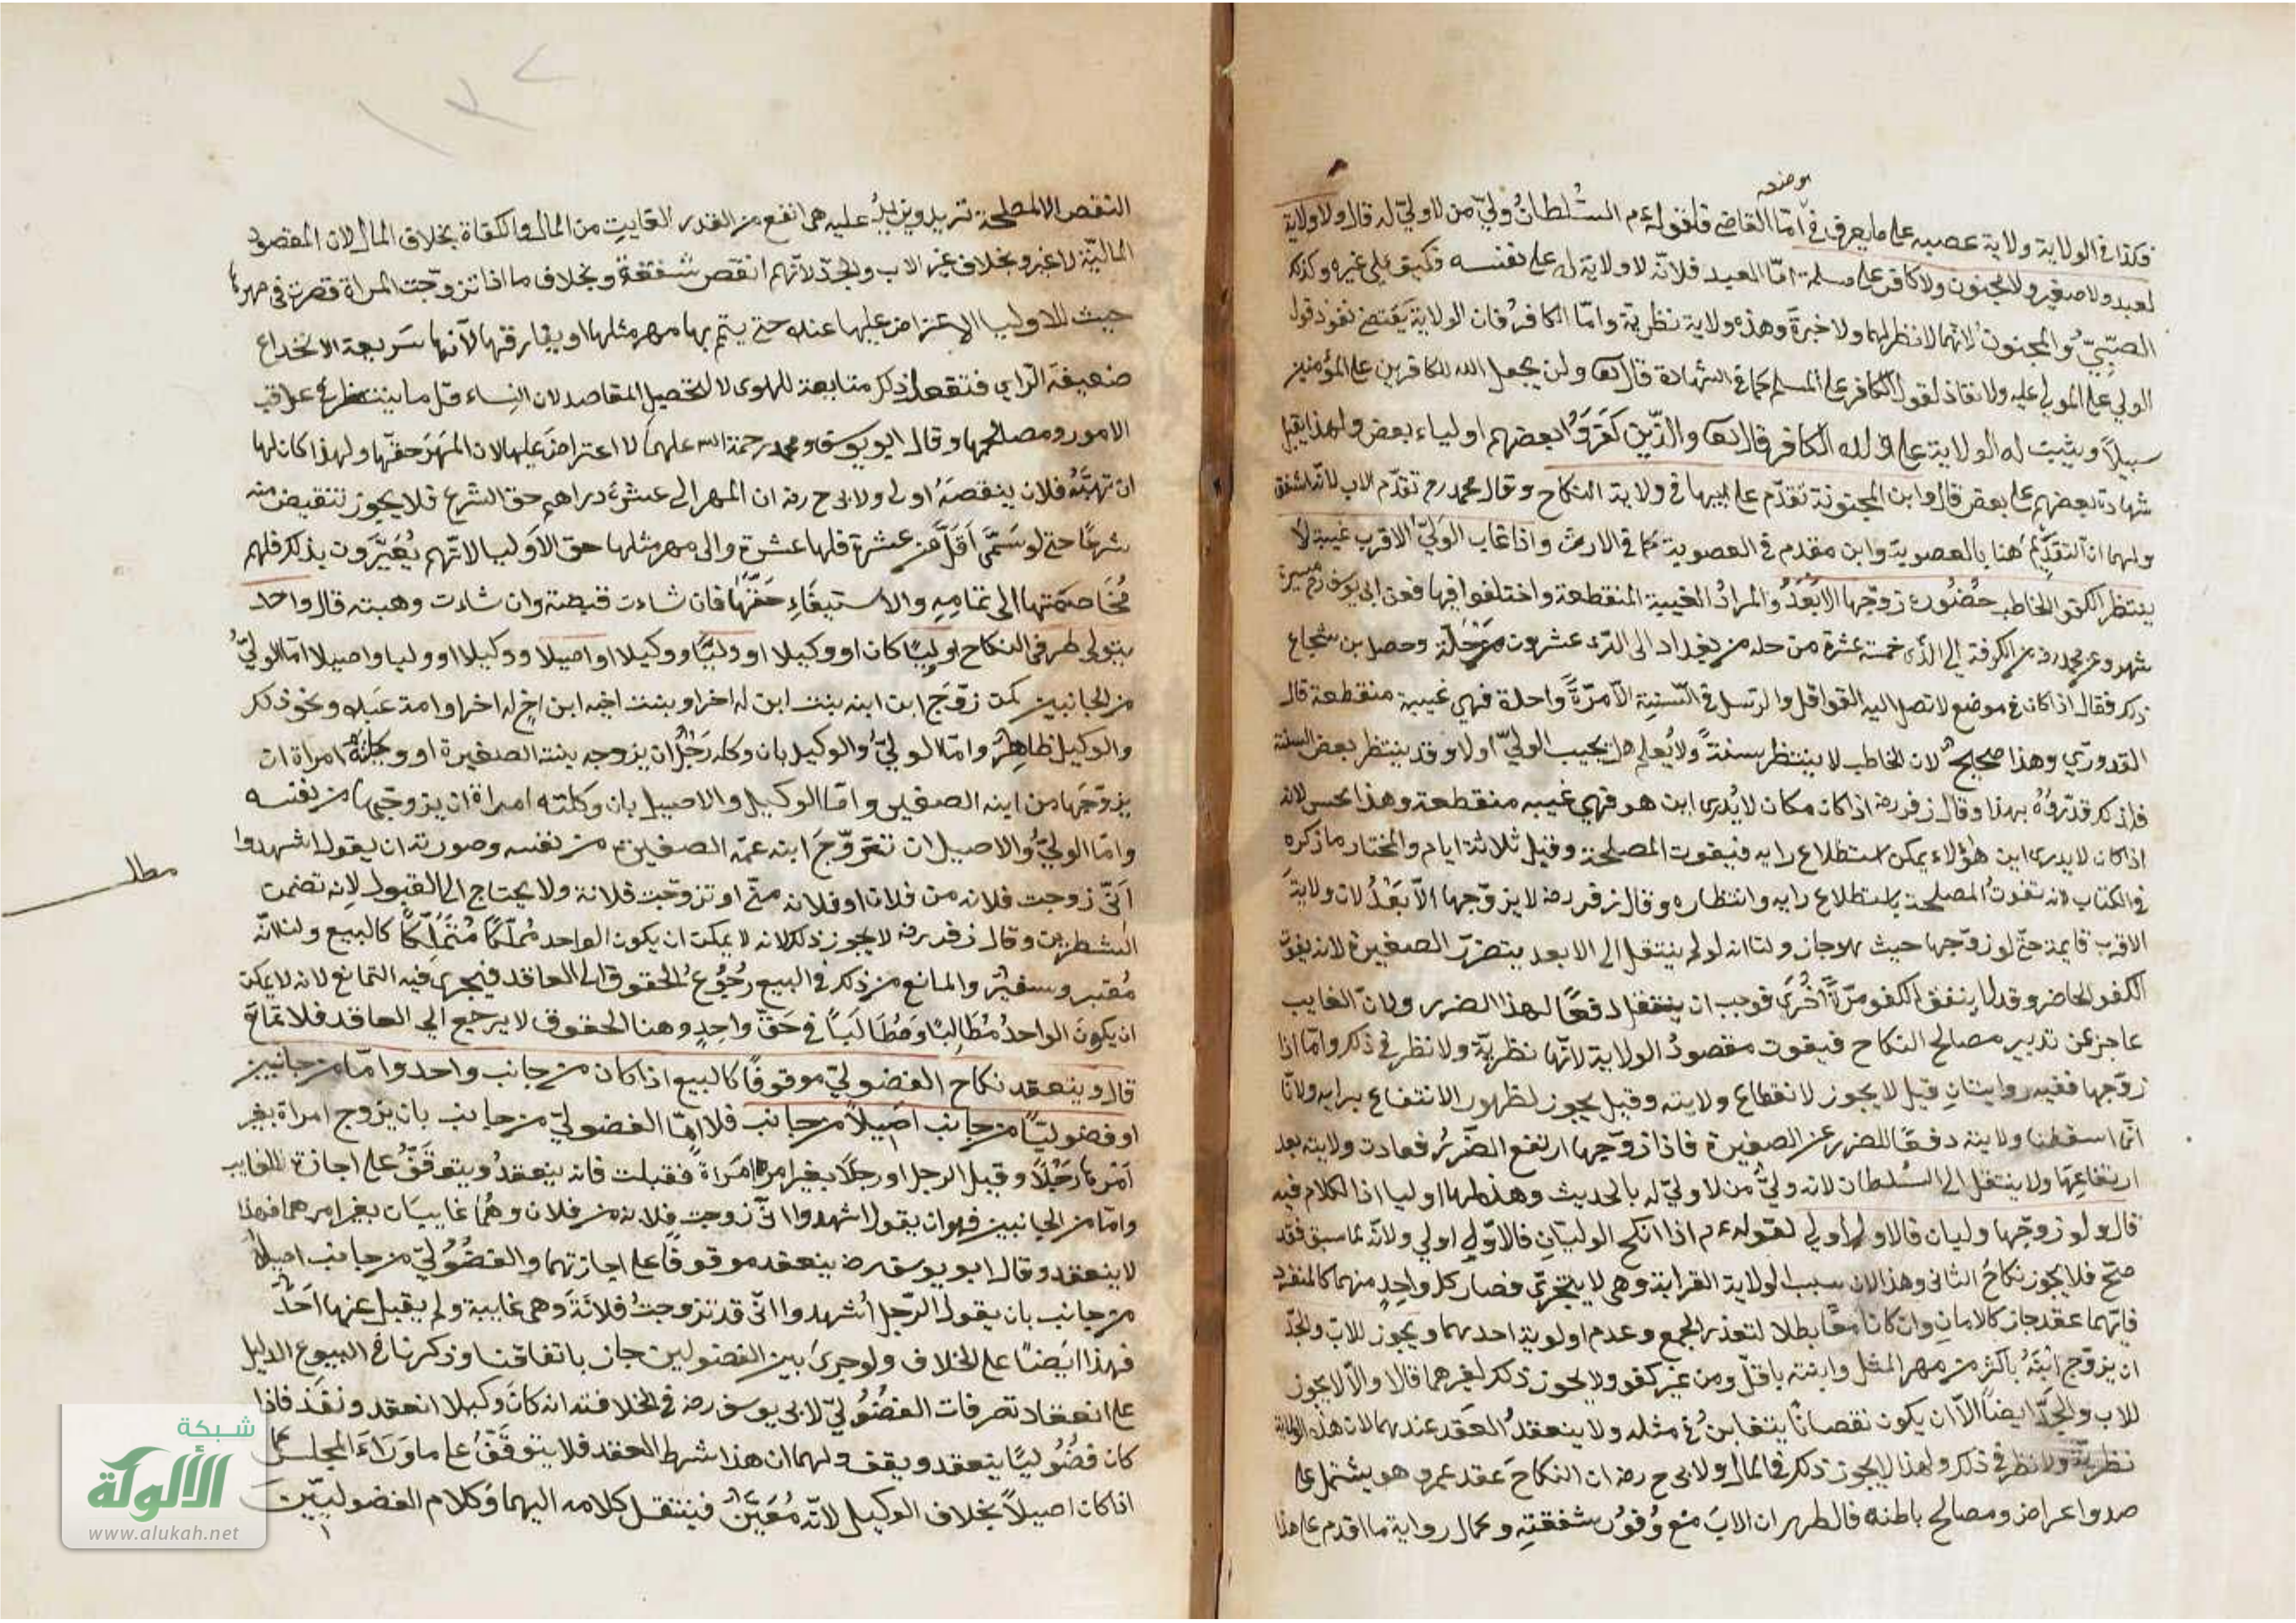 موضعه
فكذا في الولاية ولاية عصبه على ما يعرف في امّا القاضي فلقوله ءم السُلطانُ وليّ من لا وليّ له قال ولا ولاية
لعبد ولا صغير ولا مجنون ولا كافر على مسلمة امّا العبد فلانّه لا ولاية له على نفسه فكيف على غيره وكذلك
الصبيّ والمجنون لانهما لا نظر لهما ولا خبرة وهذه ولاية نظرية وامّا الكافر فان الولاية يقتضي نفوذ قول
الولي على المولى عليه ولا نفاذ لقول الكافر على المسلم كما في الشهادة قال تعا ولن يجعل الله للكافرين على المؤمنين
سبيلاً ويثبت له الولاية على ولده الكافر قال تعا والذين كفروا بعضهم اولياء بعض ولهذا يقبل
شهادة بعضهم على بعض قال وابن المجنونة تقدّم على ابيها في ولاية النكاح وقال محمد رح تقدّم الاب لانّه اشفق
ولهما ان التقدّم هنا بالعصوبة وابن مقدم في العصوبة كما في الارث واذا غاب الوليّ الاقرب غيبة لا
ينتظر الكفو الخاطب حضوره زوّجها الابعدُ والمرادُ الغيبة المنقطعة واختلفوا فيها فعن ابي يوسف رح مسيرة
شهر وعن محمد رح من الكوفة الى الرّى خمسة عشرة من حله من بغداد الى الرّى عشرون مرحلة وحصل بن شجاع
ذلك فقال اذا كان في موضع لا تصل اليه القوافل والرسل في السّنة الّا مرّةً واحدة فهي غيبة منقطعة قال
القدوريّ وهذا صحيحٌ لان الخاطب لا ينتظر سنةً ولا يُعلم هل يجيب الوليّ اولا وقد ينتظر بعض السنة
فلذلك قدّروه بهذا وقال زفر رضه اذا كان مكان لا يُدرى اين هو فهي غيبه منقطعة وهذا يحسن لانه
اذا كان لا يدرى اين هؤلاء يمكن استطلاع رايه فيفوت المصلحة وقيل ثلاثة ايام والمختار ما ذكره
في الكتاب لانه تفوتُ المصلحة باستطلاع رايه وانتظاره وقال زفر رضه لا يزوّجها الّا بعدُ لان ولايةَ
الاقرب قايمة حتّى لو زوّجها حيث هو جاز ولنا انه لو لم ينتقل الى الابعد يتضرّر الصغيرة لانه يفوت
الكفو الحاضر وقد لا يتفق الكفو مرّةً اُخرى فوجب ان ينتقل دفعًا لهذا الضرر ولانّ الغايب
عاجز عن تدبير مصالح النكاح فيفوت مقصودُ الولاية لانّها نظريّة ولا نظر في ذلك وامّا اذا
زوّجها ففيه روايتانِ قيل لا يجوز لانقطاع ولايته وقيل يجوز لظهور الانتفاع برايه ولانّا
انّما اسقطنا ولايته دفعًا للضرر عن الصغيرة فاذا زوّجها ارتفع الضّررُ فعادت ولايته بعد
ارتفاعِها ولا ينتقل الى السُلطان لانه وليّ من لا وليّ له بالحديث وهذه لها اوليا اذ الكلام فيه
قال ولو زوّجها وليان فالاول اولى لقوله ءم اذا انكح الوليّانِ فالاوّل اولى ولانّه لما سبق فقد
صحّ فلا يجوز نكاحُ الثانى وهذا لان سبب الولاية القرابة وهي لا يتجزّى فصار كل واحدٍ منهما كالمنفرد
فايّهما عقد جاز كالامان وان كانا معًا بطلا لتعذر الجمع وعدم اولوية احدهما ويجوز للاب والجدّ
ان يزوّج ابنهُ باكثر من مهر المثل وابنته باقلّ ومن غير كفو ولا يجوز ذلك لغيرهما قالا ولا يجوز
للاب والجدّ ايضًا الّا ان يكون نقصانًا يتغابنُ في مثله ولا ينعقدُ العقد عندهما لان هذه الولاية
نظريّة ولا نظر في ذلك ولهذا لا يجوز ذلك في المال ولابى ح رضه ان النكاحَ عقد عمر وهو يشتمل على
صدوا عراض ومصالح باطنه فالظهر ان الابَ مع وُفورِ شفقتِه وكمال رواية ما اقدم على هذا
النقص الا لمصلحة تزيد عليه هى انفع من القدر الفايت من المال والكفاة بخلاف المال لان المقصود
الماليّة لا غير وبخلاف غير الاب والجدّ لانّهم انقص شفقةً وبخلاف ما اذا تزوّجت المراة قصرت في مهرها
حيث للاوليا الاعتراض عليها عنده حتى يتم بها مهر مثلها او يفارقها لانّها سَريعة الانخداع
ضعيفة الراي فتفعل ذلك متابعة للهوى لا لتحصيل المقاصد لان النِساء قلّ ما ينتظر في عواقب
الامور ومصالحها وقال ابو يوسف ومحمد رحمة الله عليهما لا اعتراضَ عليها لان المهرَ حقّها ولهذا كان لها
ان تهبَهُ فلان ينقصهُ اولى ولابى ح رضه ان المهر الى عشرة دراهم حق الشرع فلا يجوز تنقيض منه
شرعًا حتى لو سَمّى اَقلَّ من عشرة فلها عشرة والى مهر مثلها حق الاوليا لانّهم يُعيَّرون بذلك فلهم
مُخاصمتها الى تمامِهِ والاستيفاءِ حقّها فان شاءت قبضته وان شاءت وهبته قال واحد
يتولى طرفى النكاح وليًّا كان او وكيلا او وليًّا ووكيلا او اصيلا ووكيلا او وليا واصيلا امّا الوليُّ
من الجانبين كمن زوّج ابن ابنه بنت ابن له اخر او بنت اخيه ابن اخٍ له اخر او امته عبده ونحو ذلك
والوكيل ظاهِرٌ وامّا الوليّ والوكيل بان وكله رَجُل ان يزوجه بنته الصغيرة او وكلتهُ امراة ان
يزوّجَها من ابنه الصغير وامّا الوكيل والاصيل بان وكلته امراة ان يزوجها من نفسه
وامّا الوليُّ والاصيل ان تزوّجَ ابنه عمّه الصغيرة من نفسه وصورته ان يقول اشهدوا
مطلـ
انّى زوجت فلانه من فلان او فلانه منّى او تزوجت فلانة ولا يحتاج الى القبول لانه تضمن
الشطرين وقال زفر رضه لا يجوز ذلك لانه لا يمكن ان يكون الواحد مُملّكًا مُتملّكًا كالبيع ولنا انّه
مُعبر وسفيرٌ والمانع من ذلك في البيع رُجوعُ الحقوق الى العاقد فيجرى فيه التمانع لانه لا يمكن
ان يكونَ الواحدُ مُطالِبًا ومُطالَبًا في حَقّ واحِدٍ وهنا الحقوق لا يرجع الى العاقد فلا تمانع
قال وينعقد نكاح الفضوليّ موقوفًا كالبيع اذا كان من جانب واحد وامّا من جانبين
او فضوليًّا من جانب اصيلاً من جانب فلا امّا الفضوليّ من جانب بان يزوج امراة بغير
اَمرها رَجُلاً وقبل الرجل او رجلاً بغير امره امراةً فقبلت فانه ينعقدُ ويتوقّفُ على اجازة الغايب
وامّا من الجانبين فهو ان يقول اشهدوا انّى زوجت فلانه من فلان وهُما غايبيان بغير امرهما فهذا
لا ينعقد وقال ابو يوسف رضه ينعقد موقوفًا على اجازتهما والفضُوليّ من جانب اصيلاً
من جانب بان يقول الرّجل اُشهدوا انّى قد تزوجتُ فلانةَ وهى غايبة ولم يقبل عنها احَدٌ
فهذا ايضًا على الخلاف ولو جرى بين الفضولين جاز باتفاقنا وذكرنا في البيوع الدليل
على انعقاد تصرفات الفضُوليّ لابى يوسف رضه في الخلافته انه كانَ وكيلا انعقد ونفذ فاذا
كان فضُوليًا ينعقد ويقف ولهما ان هذا شرط العقد فلا يتوقفُ على ما وَرَاءَ المجلس كما
اذا كان اصيلاً بخلاف الوكيل لانّه مُعَبّر فينتقل كلامه اليهما وكلام الفضوليّين
شبكة
الألوكة
www.alukah.net